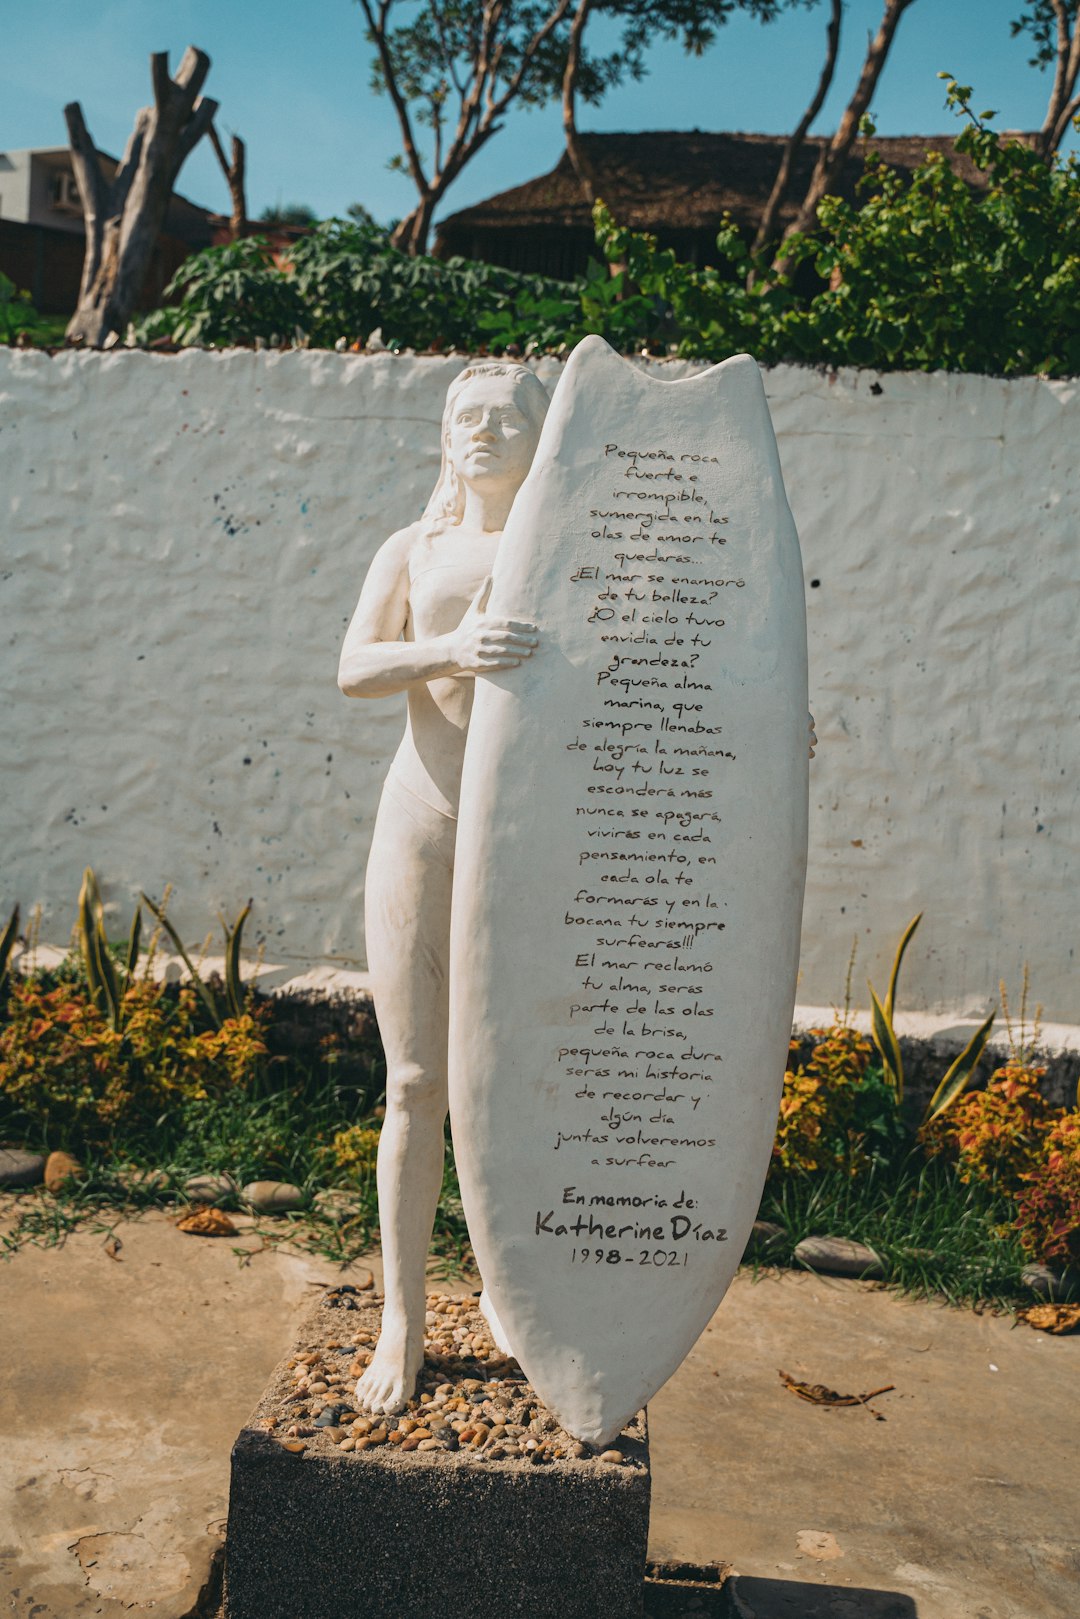 Pequeña roca
fuerte e
irrompible,
sumergida en las
olas de amor te
quedarás...
¿El mar se enamoró
de tu belleza?
¿O el cielo tuvo
envidia de tu
grandeza?
Pequeña alma
marina, que
siempre llenabas
de alegría la mañana,
hoy tu luz se
esconderá más
nunca se apagará,
vivirás en cada
pensamiento, en
cada ola te
formarás y en la
bocana tu siempre
surfearás!!!
El mar reclamó
tu alma, serás
parte de las olas
de la brisa,
pequeña roca dura
serás mi historia
de recordar y
algún día
juntas volveremos
a surfear
En memoria de:
Katherine Díaz
1998-2021